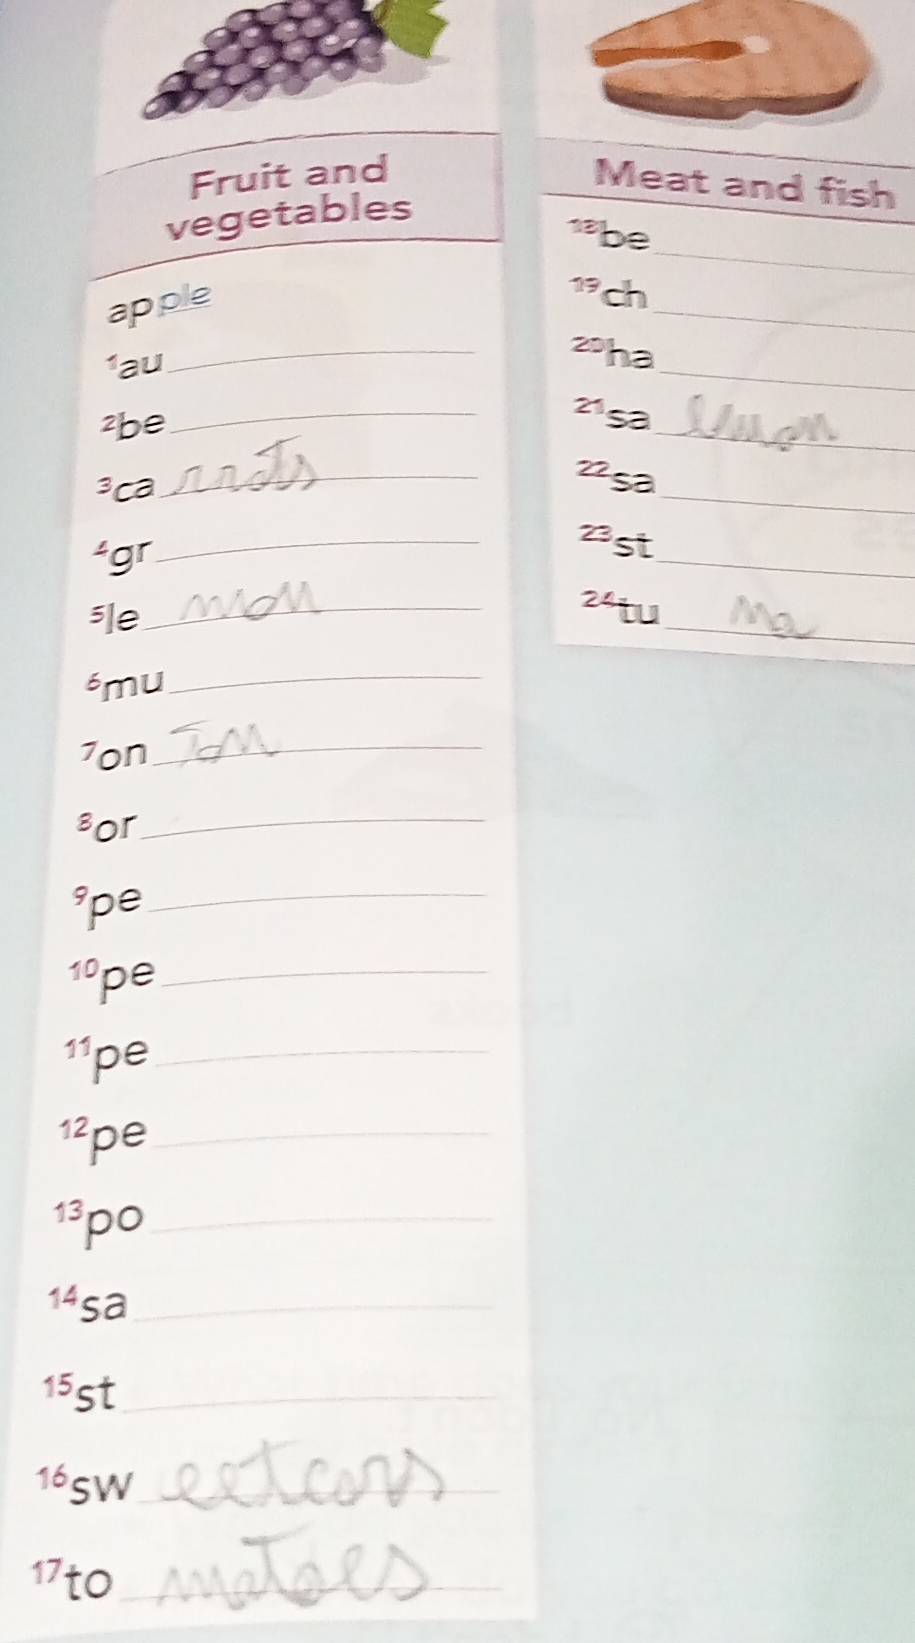 Fruit and
vegetables
apple
1au
2be
3ca rrots
4gr
5le mon
6mu
7on Ion
8or
9pe
10pe
11pe
12pe
13po
14sa
15st
16sw eetcorn
17to matoes
Meat and fish
18be
19ch
20ha
21sa lmon
22sa
23st
24tu na